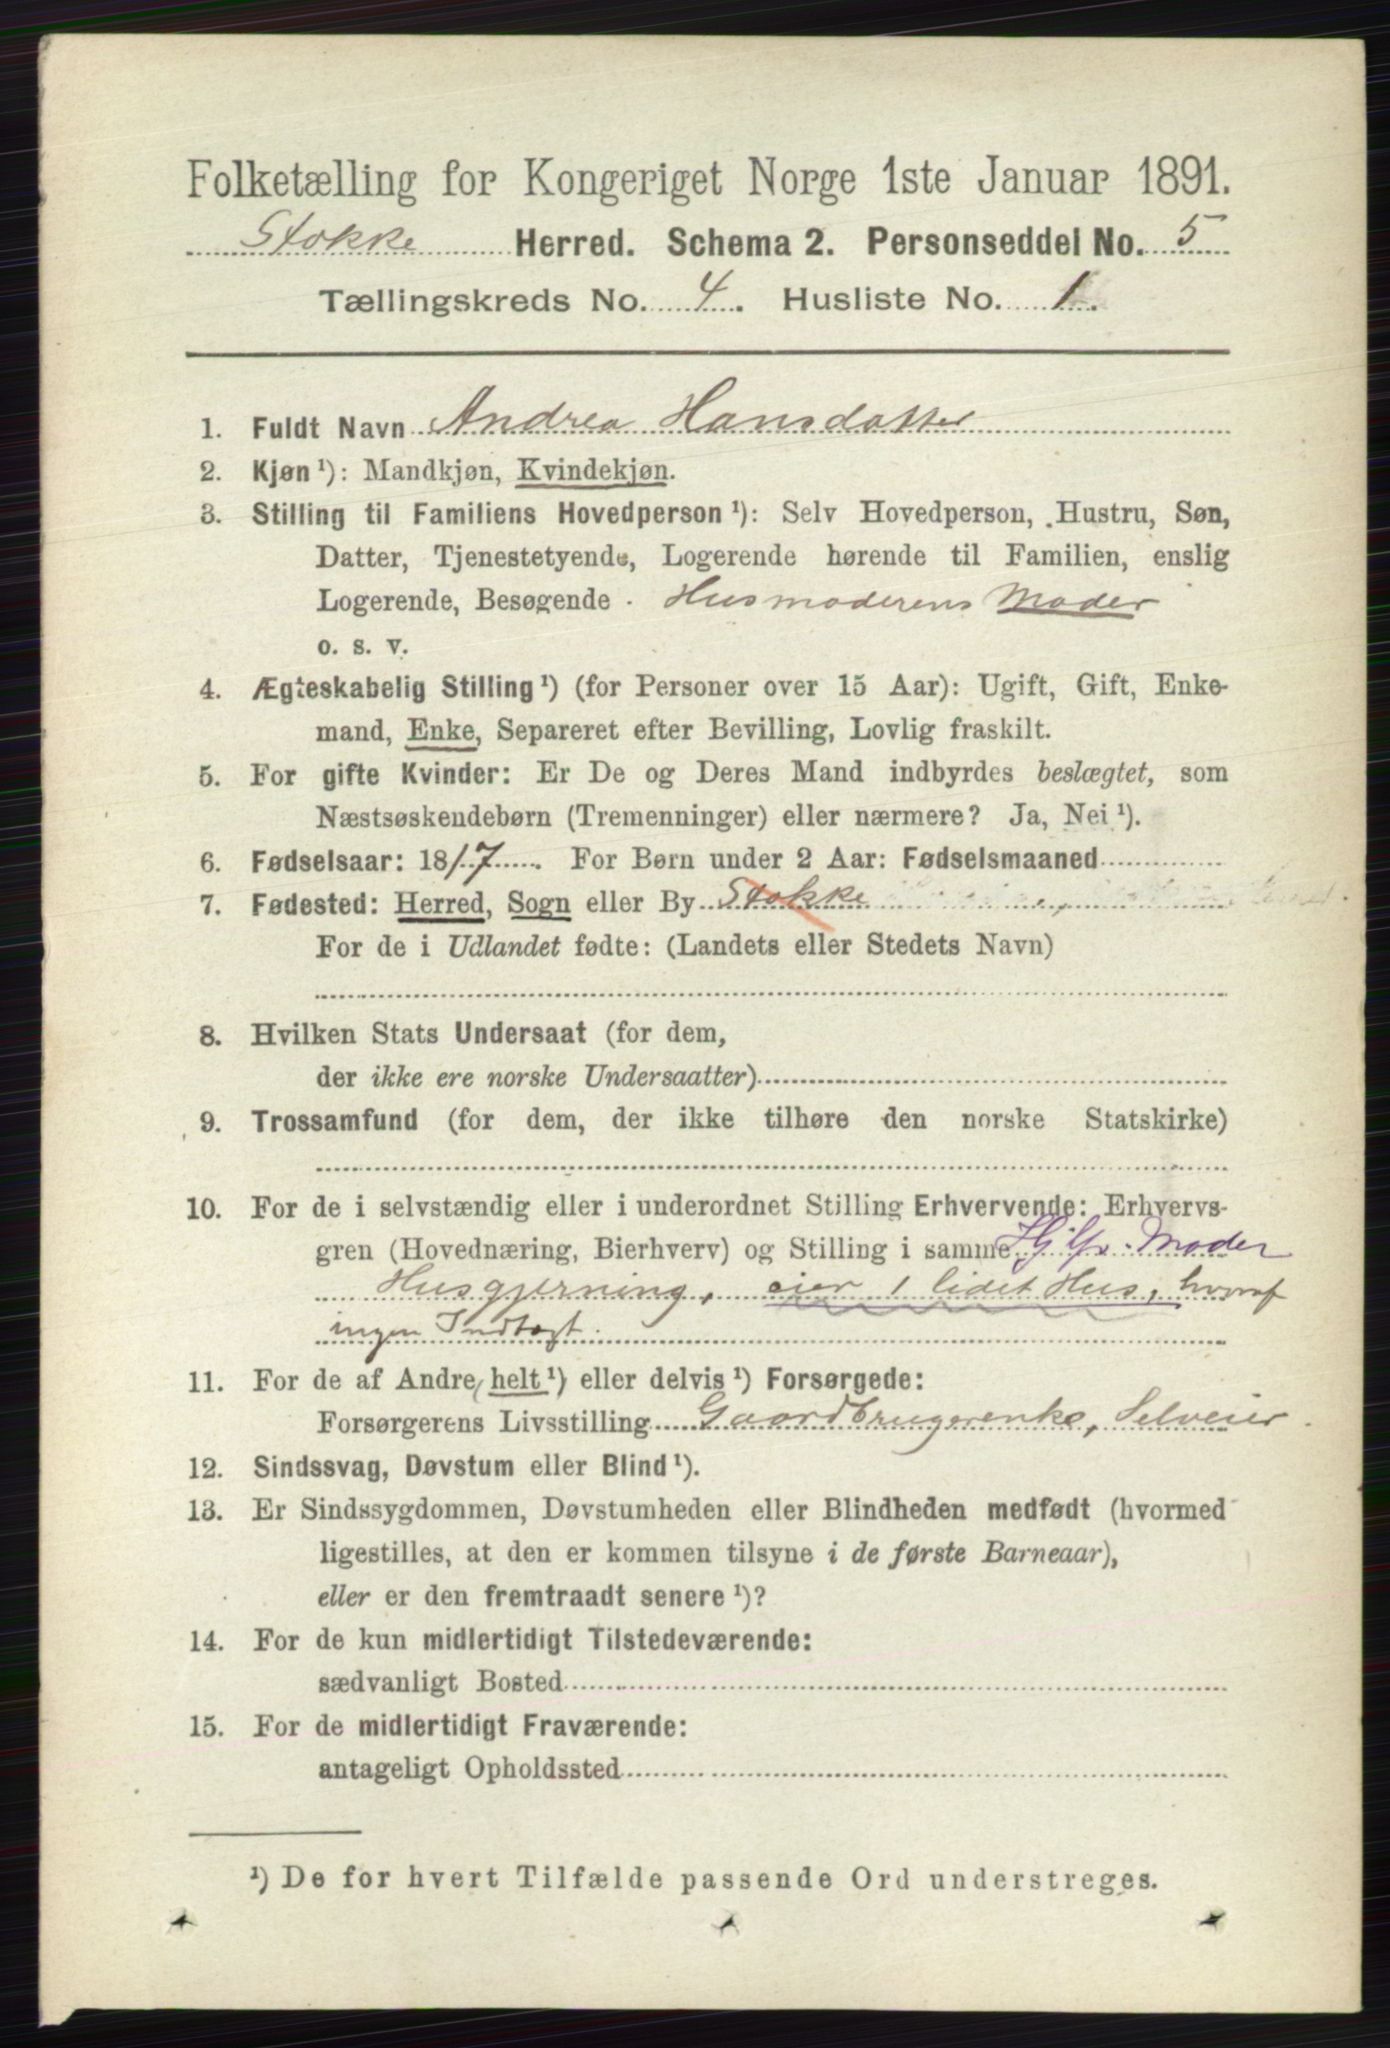 Folketælling for Kongeriget Norge 1ste Januar 1891.
Stokke Herred. Schema 2. Personseddel No. 5
Tællingskreds No. 4. Husliste No. 1.
1. Fuldt Navn Andrea Hansdatter
2. Kjøn ¹): Mandkjøn, Kvindekjøn.
3. Stilling til Familiens Hovedperson ¹): Selv Hovedperson, Hustru, Søn,
Datter, Tjenestetyende, Logerende hørende til Familien, enslig
Logerende, Besøgende . Husmoderens Moder
o. s. v.
4. Ægteskabelig Stilling ¹) (for Personer over 15 Aar): Ugift, Gift, Enke-
mand, Enke, Separeret efter Bevilling, Lovlig fraskilt.
5. For gifte Kvinder: Er De og Deres Mand indbyrdes beslægtet, som
Næstsøskendebørn (Tremenninger) eller nærmere? Ja, Nei ¹).
6. Fødselsaar: 1817. For Børn under 2 Aar: Fødselsmaaned
7. Fødested: Herred, Sogn eller By Stokke
For de i Udlandet fødte: (Landets eller Stedets Navn)
8. Hvilken Stats Undersaat (for dem,
der ikke ere norske Undersaatter)
9. Trossamfund (for dem, der ikke tilhøre den norske Statskirke)
10. For de i selvstændig eller i underordnet Stilling Erhvervende: Erhvervs-
gren (Hovednæring, Bierhverv) og Stilling i samme Moder
Husgjerning, eier 1 lidet Hus, hvoraf
ingen Indtægt.
11. For de af Andre (helt ¹) eller delvis ¹) Forsørgede:
Forsørgerens Livsstilling Gaardbrugerenke, Selveier.
12. Sindssvag, Døvstum eller Blind ¹).
13. Er Sindssygdommen, Døvstumheden eller Blindheden medfødt (hvormed
ligestilles, at den er kommen tilsyne i de første Barneaar),
eller er den fremtraadt senere ¹)?
14. For de kun midlertidigt Tilstedeværende:
sædvanligt Bosted
15. For de midlertidigt Fraværende:
antageligt Opholdssted
¹) De for hvert Tilfælde passende Ord understreges.